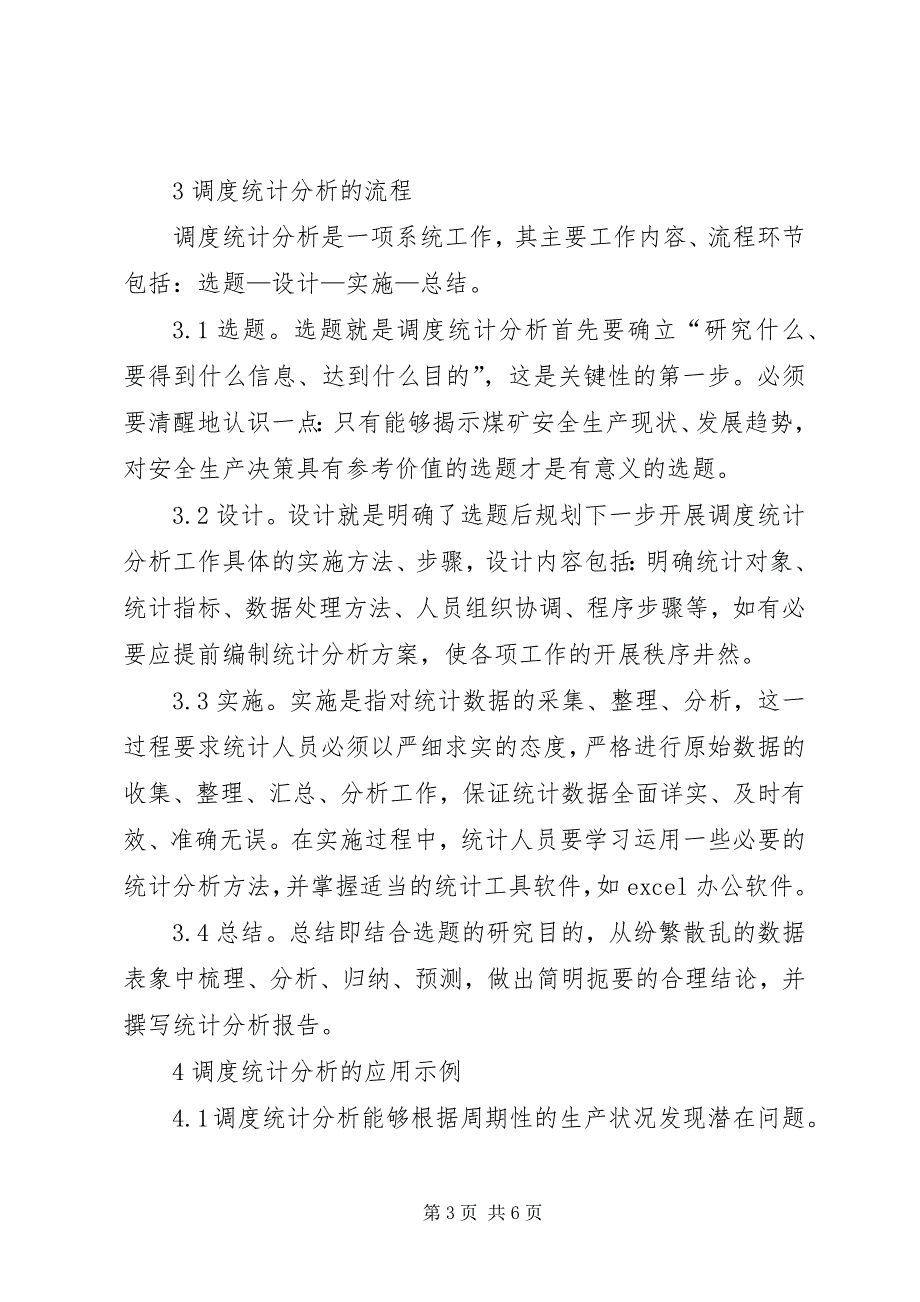 3 调度统计分析的流程
调度统计分析是一项系统工作，其主要工作内容、流程环节
包括：选题—设计—实施—总结。
3.1 选题。选题就是调度统计分析首先要确立“研究什么、
要得到什么信息、达到什么目的”，这是关键性的第一步。必须
要清醒地认识一点：只有能够揭示煤矿安全生产现状、发展趋势，
对安全生产决策具有参考价值的选题才是有意义的选题。
3.2 设计。设计就是明确了选题后规划下一步开展调度统计
分析工作具体的实施方法、步骤，设计内容包括：明确统计对象、
统计指标、数据处理方法、人员组织协调、程序步骤等，如有必
要应提前编制统计分析方案，使各项工作的开展秩序井然。
3.3 实施。实施是指对统计数据的采集、整理、分析，这一
过程要求统计人员必须以严细求实的态度，严格进行原始数据的
收集、整理、汇总、分析工作，保证统计数据全面详实、及时有
效、准确无误。在实施过程中，统计人员要学习运用一些必要的
统计分析方法，并掌握适当的统计工具软件，如 excel 办公软件。
3.4 总结。总结即结合选题的研究目的，从纷繁散乱的数据
表象中梳理、分析、归纳、预测，做出简明扼要的合理结论，并
撰写统计分析报告。
4 调度统计分析的应用示例
4.1 调度统计分析能够根据周期性的生产状况发现潜在问题。
第 3 页 共 6 页